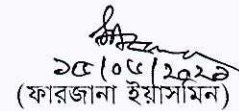 ১৫/০৫/২০২১
(ফারজানা ইয়াসমিন)